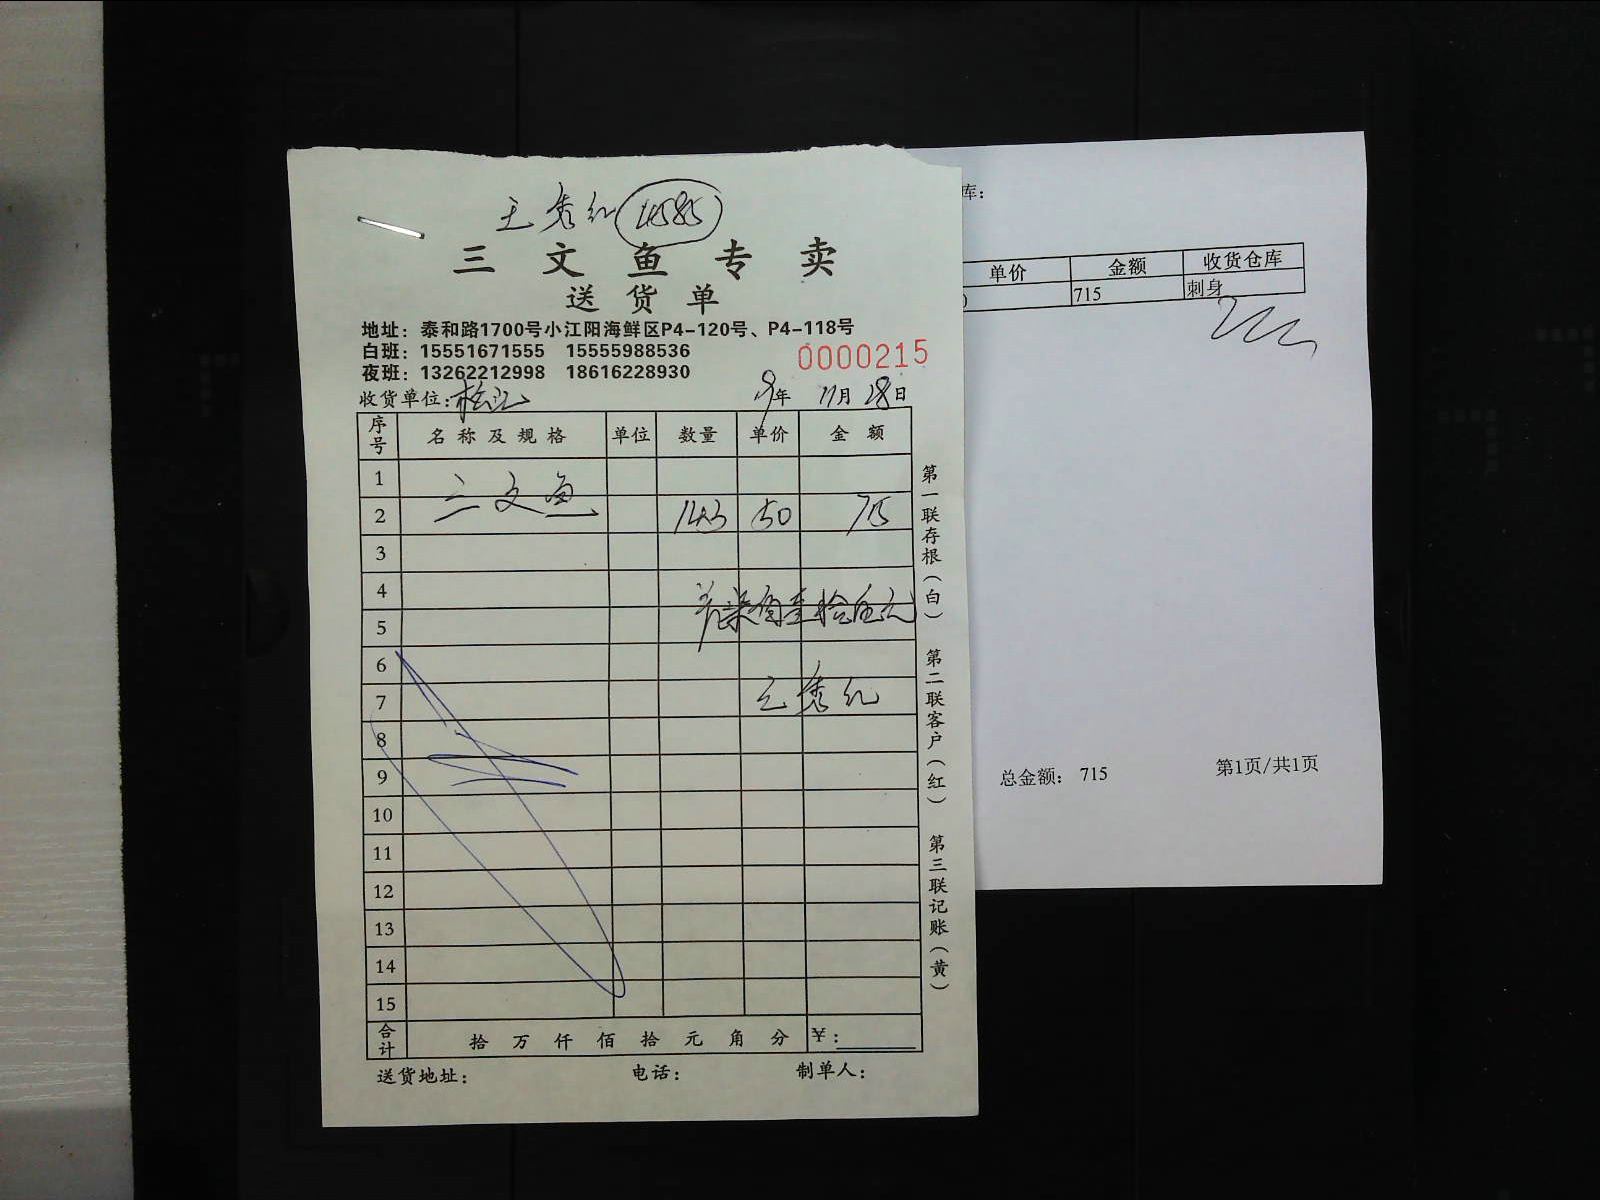 王秀红 4585
三文鱼专卖
送货单
地址：泰和路1700号小江阳海鲜区P4-120号、P4-118号
白班：15551671555 15555988536
夜班：13262212998 18616228930
0000215
收货单位： 9年 11月 28日
序号 名称及规格 单位 数量 单价 金额
1
三文鱼
2 143 50 715
3
4
柒佰壹拾伍元
5
6
7 王秀红
8
9
10
11
12
13
14
15
合计 拾 万 仟 佰 拾 元 角 分 ¥：
送货地址： 电话： 制单人：
第一联存根（白） 第二联客户（红） 第三联记账（黄）
库：
单价 金额 收货仓库
715 刺身
总金额： 715 第1页/共1页